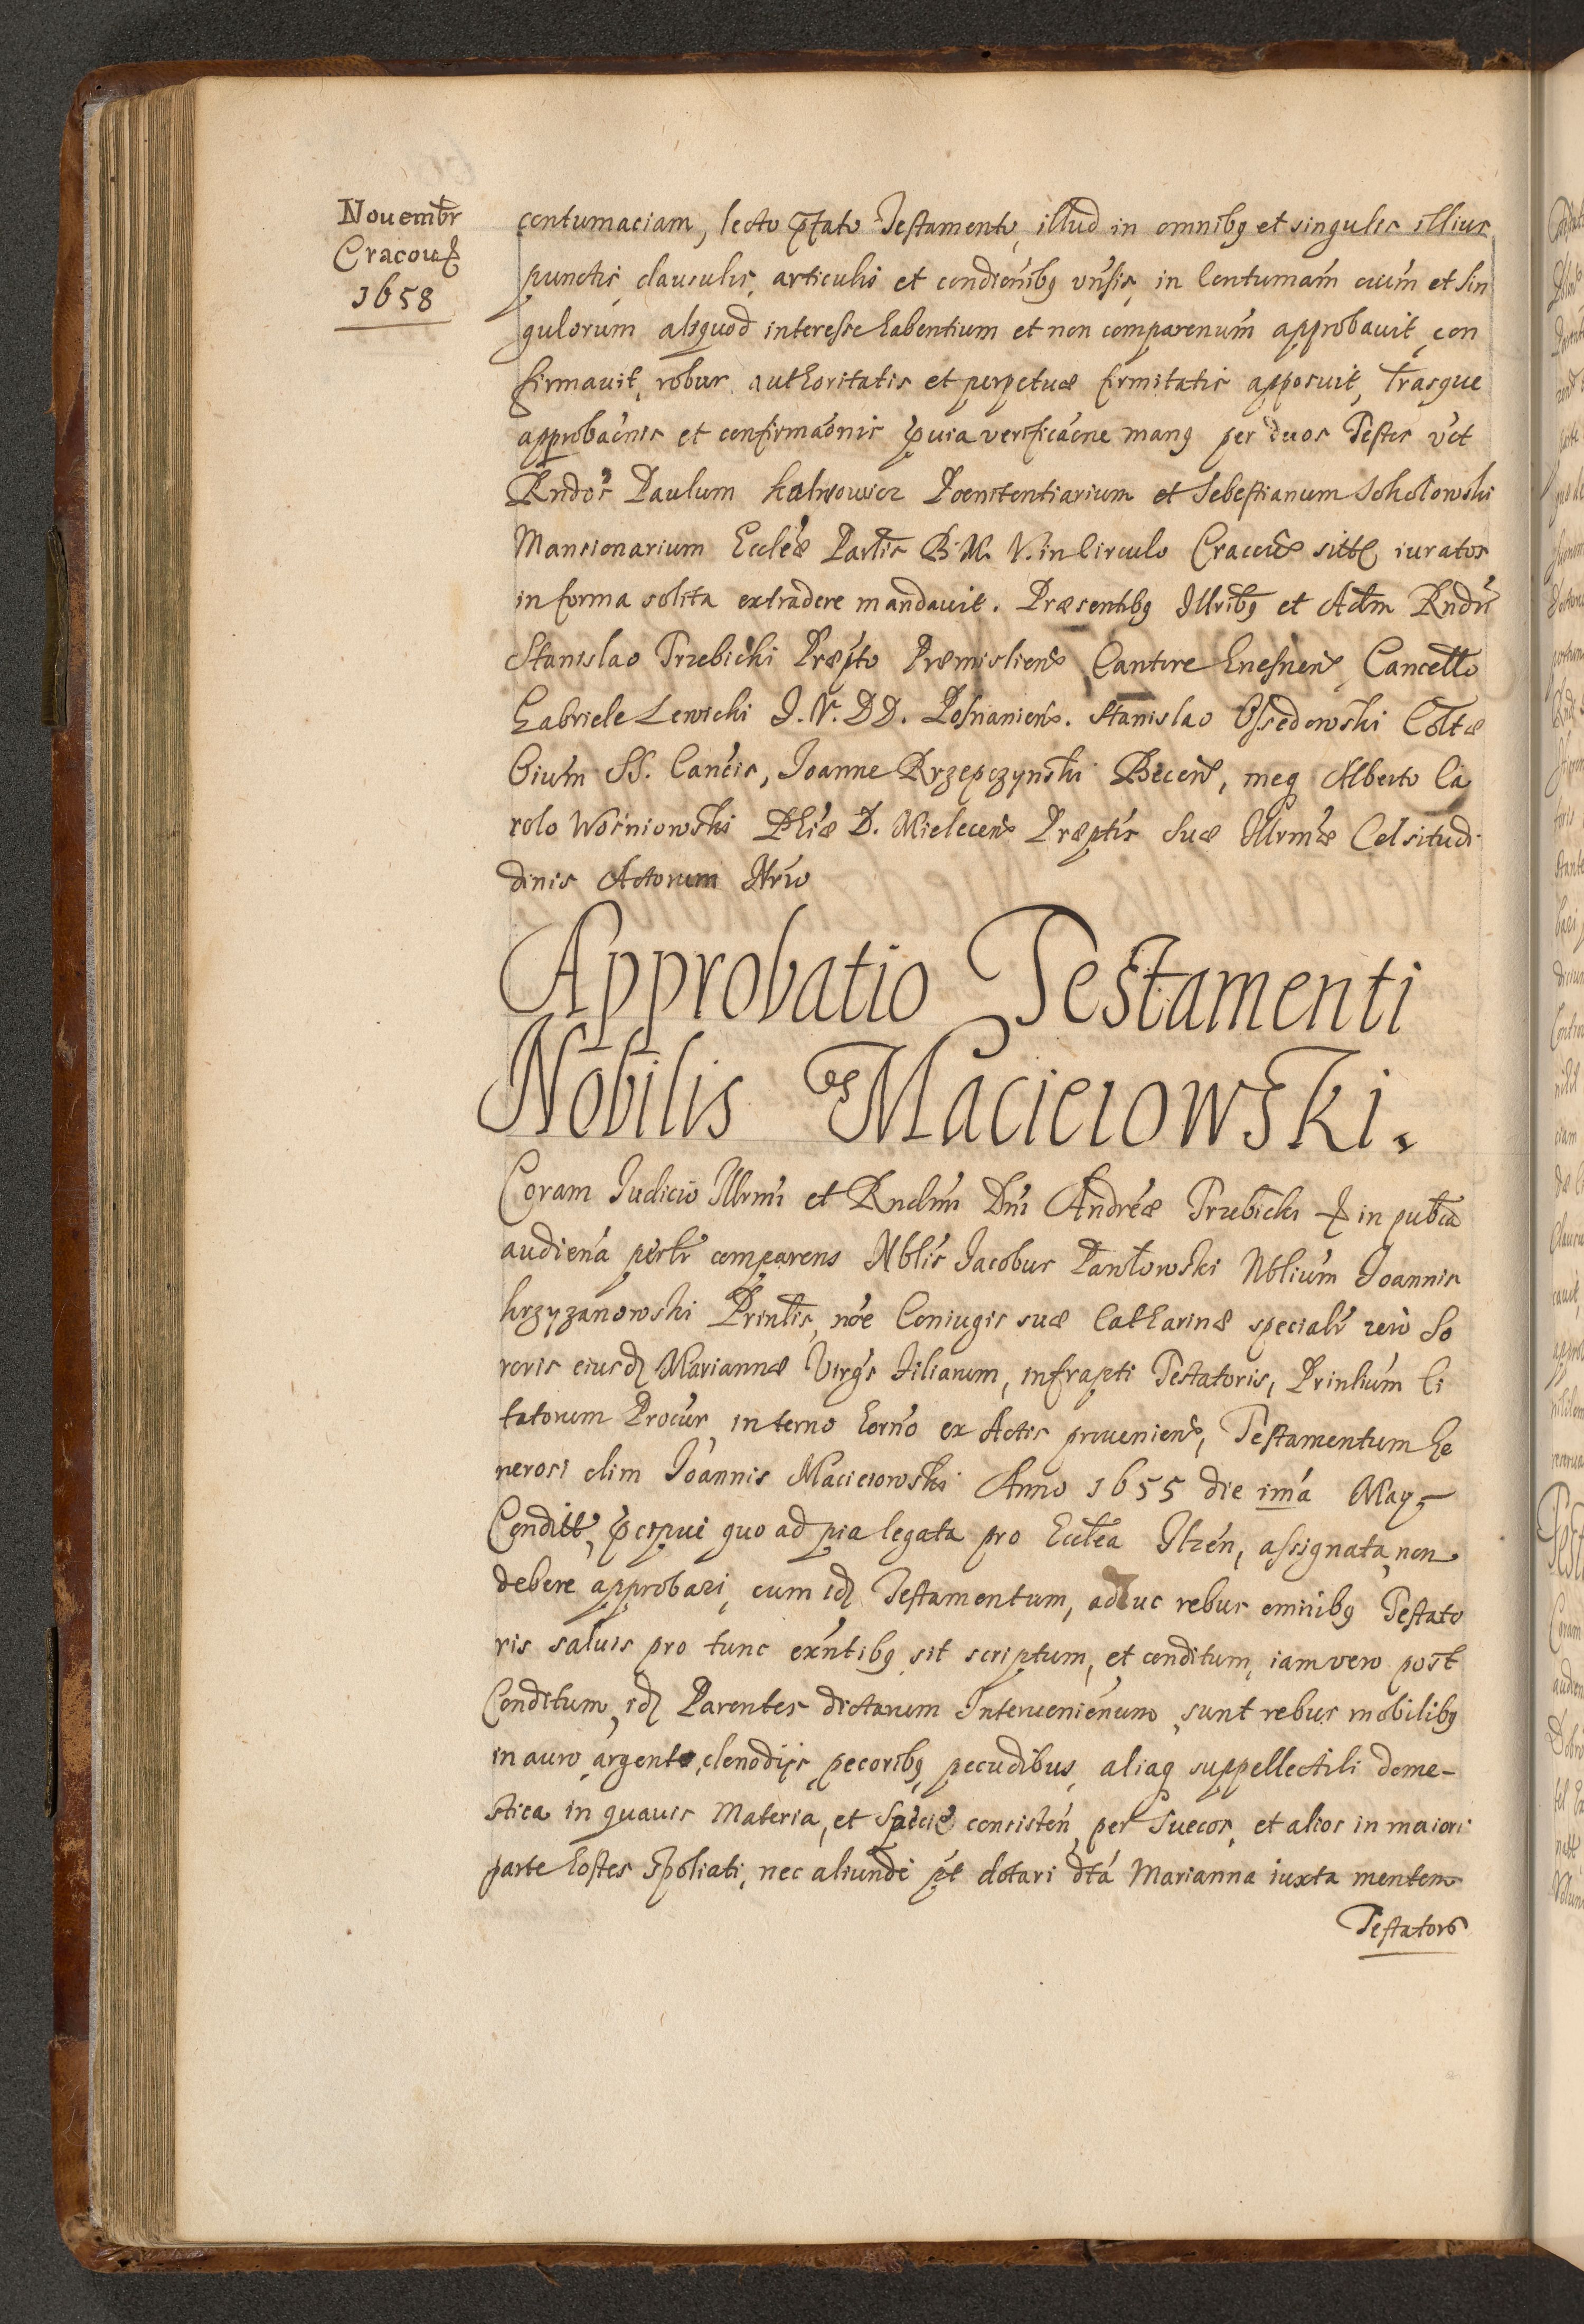 Nouembr
Cracouiæ
1658
contumaciam, lecto p̄tato Testamento, illud in omnibq et singulis illius
punctis, clausulis, articulis et condiońibq vńsis, in Contumaḿ oiuḿ et Sin
gulorum aliquod interesse habentium et non comparenuḿ approbauit, con
firmauit, robur authoritatis et perpetuæ firmitatis apposuit, l̄rasque
approbaónis et confirmaónis p̄uia verificaóne manq per duos Testes v̓ct
Rndos Paulum Paenitentiarium et Sebestianum Sokolowski
Mansionarium Eccl̓æ B. M. V. in Circulo iuratos
in forma solita extradere mandauit. Præsentibq Illribq et Adm Rndis
Stanislao Trzebicki Præpto Præmisliens, Cantore Gnesnen, Cancello
Gabriele Lewicki J. V. DD. Posnaniens. Stanislao Ossedowski Coltæ
Oiuḿ SS. Canc̓is, Joanne Rzepczynski Becen, meq Alberto Ca
rolo Wosniowski Phiæ D. Mielecens Præptis Suæ Illrmæ Celsitudi
dinis Actorum Nrio
Approbatio Testamenti
Nobilis Macieiowski.
Coram Iudicio Illrmi et Rndmi Dni Andreæ Trzebicki in publca
audien̓a pers̓lr comparens Nblis Jacobus Pawlowski Nblium Joannis
Krzyzanowski Prinlis, nōe Coniugis suæ Catharinæ specialr vero So
roris eiusd Mariannæ Virgs filiarum, infrapti Testatoris, Prinlium Ci
tatorum Procur, in termo horno ex Actis proueniens, Testamentum Ge
nerosi olim Joannis Macieiowski Anno 1655 die ima May
Condit, p̄cipui quo ad pia legata pro Ecclea Ilzen, assignata, non
debere approbari, cum id Testamentum, adhuc rebus omnibq Testato
ris saluis pro tunc exńtibq sit scriptum, et conditum, iam vero post
Conditum, id Parentes dictarum Interuenienum, sunt rebus mobilibq
in auro, argento, clenodijs, pecoribq, pecudibus, aliaq suppellectili dome-
stica in quauis Materia, et Specie consisten, per Suecos, et alios in maiori
parte hostes spoliati, nec aliunde p̓t dotari dta Marianna iuxta mentem
Testatoris